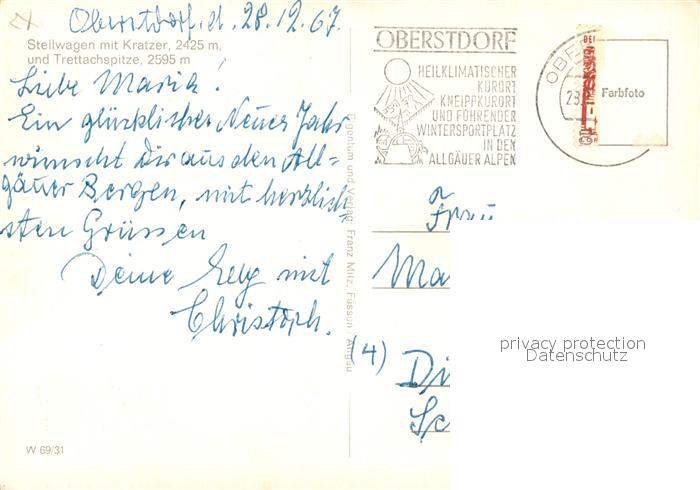 Oberstdorf. d. 28.12.67.
Stellwagen mit Kratzer, 2425 m,
und Trettachspitze, 2595 m
Liebe Maria!
Ein glücklisches Neues Jahr
wünscht Dir aus den All=
gäuer Bergen, mit herzlich
sten Grüssen
Deine Elly mit
Christoph.
W 69/31
Eigentum und Verlag Franz Milz, Füssen Allgäu
OBERSTDORF
HEILKLIMATISCHER
KURORT
KNEIPPKURORT
UND FÜHRENDER
WINTERSPORTPLATZ
IN DEN
ALLGÄUER ALPEN
OBE
Farbfoto
Frau
Ma
(4)
Di
Sc
privacy protection
Datenschutz